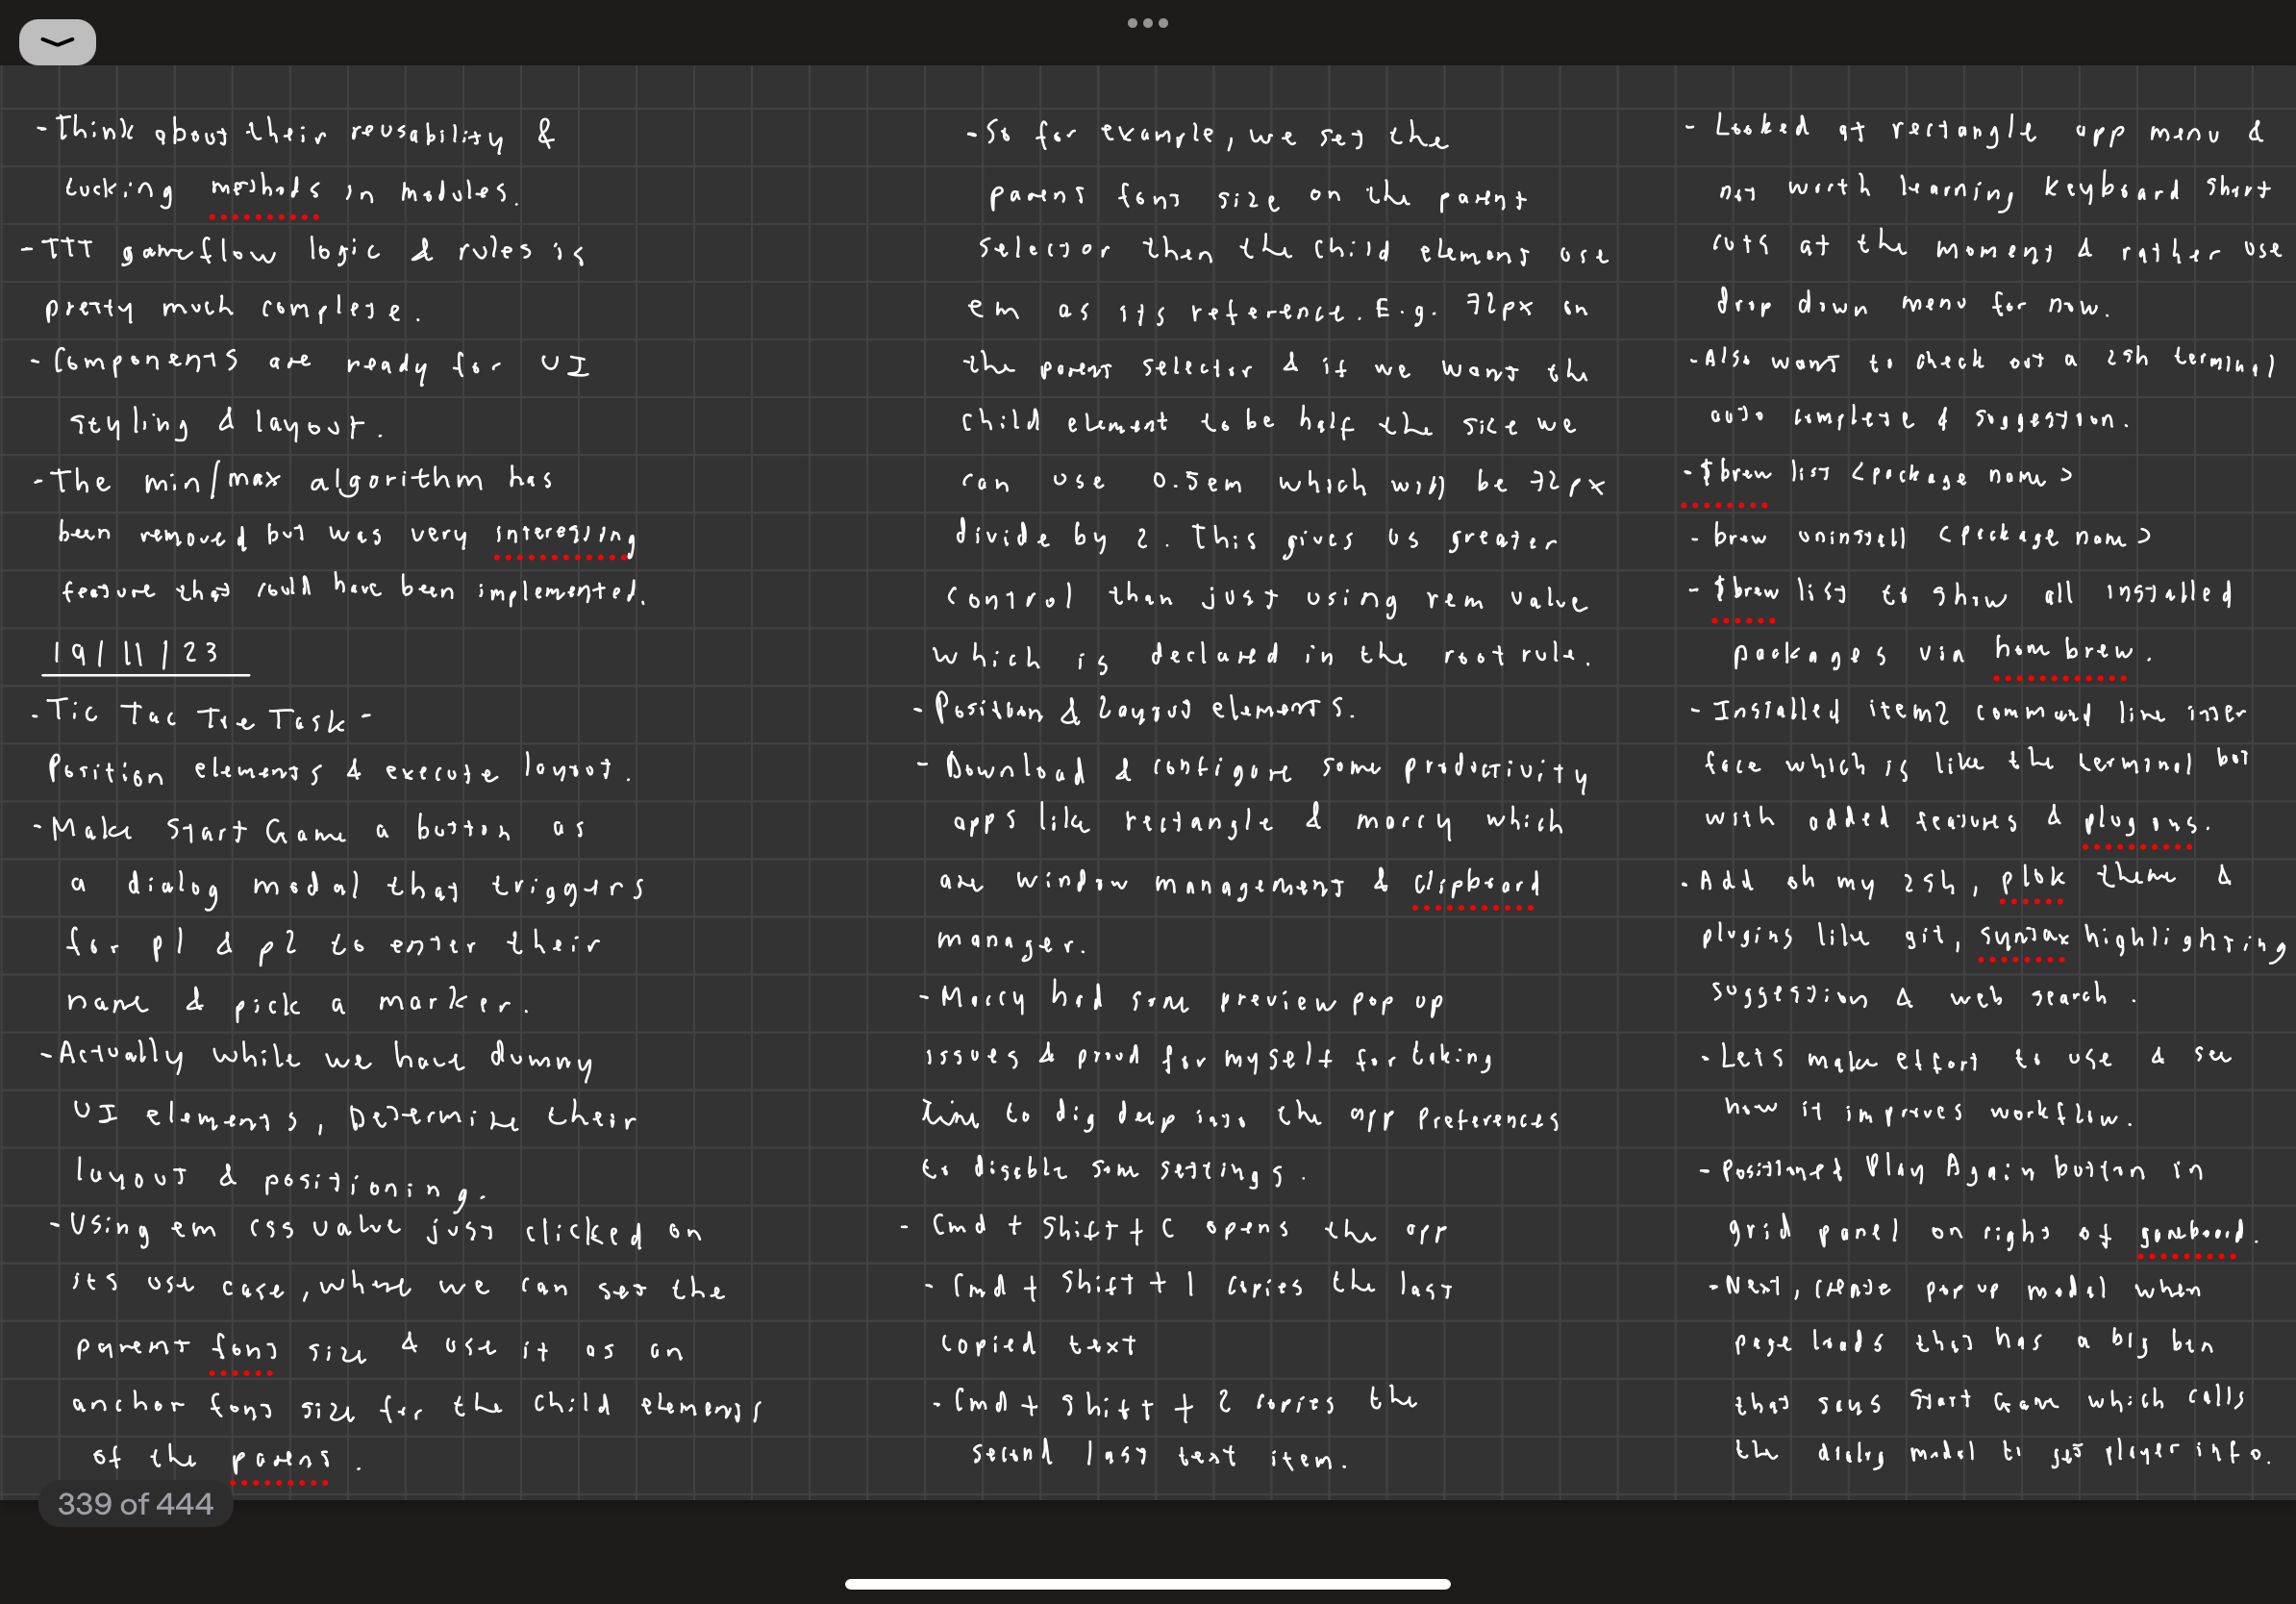 - Think about their reusability &
tucking methods in modules.
- TTT gameflow logic & rules is
pretty much complete.
- Components are ready for UI
styling & layout.
- The min/max algorithm has
been removed but was very interesting
feature that could have been implemented.
19/11/23
- Tic Tac Toe Task -
Position elements & execute layout.
- Make Start Game a button as
a dialog modal that triggers
for p1 & p2 to enter their
name & pick a marker.
- Actually while we have dummy
UI elements, Determine their
layout & positioning.
- Using em css value just clicked on
its use case, where we can set the
parent font size & use it as an
anchor font size for the child elements
of the parent.
- So for example, we set the
parent font size on the parent
selector then the child element use
em as its reference. E.g. 72px on
the parent selector & if we want the
child element to be half the size we
can use 0.5em which will be 72px
divide by 2. This gives us greater
control than just using rem value
which is declared in the root rule.
- Position & Layout elements.
- Download & configure some productivity
apps like rectangle & maccy which
are window management & clipboard
manager.
- Maccy had some preview pop up
issues & proud for myself for taking
time to dig deep into the app preferences
to disable some settings.
- Cmd + Shift + C opens the app
- Cmd + Shift + 1 copies the last
copied text
- Cmd + Shift + 2 copies the
second last text item.
- Looked at rectangle app menu &
not worth learning keyboard short
cuts at the moment & rather use
drop down menu for now.
- Also want to check out a zsh terminal
auto complete & suggestion.
- $ brew list <package name>
- brew uninstall <package name>
- $ brew list to show all installed
packages via home brew.
- Installed item2 command line inter
face which is like the terminal but
with added features & plug ons.
- Add oh my zsh, p10k theme &
plugins like git, syntax highlighting
suggestion & web search.
- Lets make effort to use & see
how it improves workflow.
- Positioned Play Again button in
grid panel on right of gameboard.
- Next, create pop up modal when
page loads that has a big btn
that says Start Game which calls
the dialog modal to get player info.
339 of 444